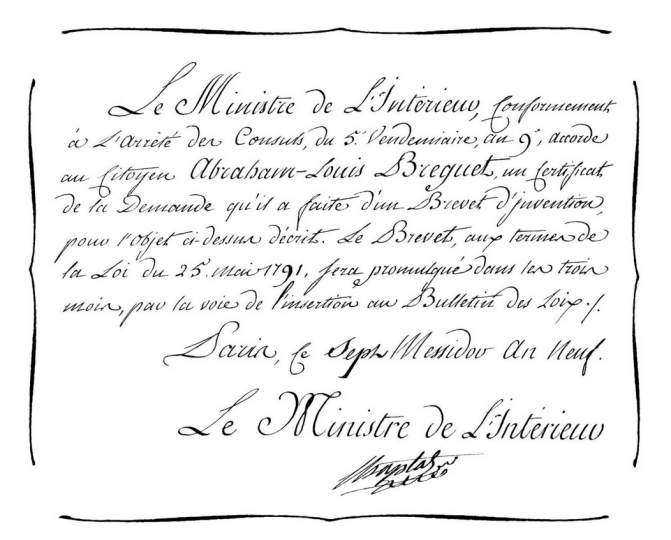 Le Ministre de L'Intérieur, Conformément
à L'Arrêté des Consuls, du 5. Vendémiaire, an 9e, accorde
au Citoyen Abraham-Louis Breguet, un Certificat
de la Demande qu'il a faite d'un Brevet d'jnvention,
pour l'objet ci-dessus décrit. Le Brevet, aux termes de
la Loi du 25. mai 1791, sera promulgué dans les trois
mois, par la voie de l'insertion au Bulletin des Loix./.
Paris, ce Sept Messidor An Neuf.
Le Ministre de L'Intérieur
Chaptal